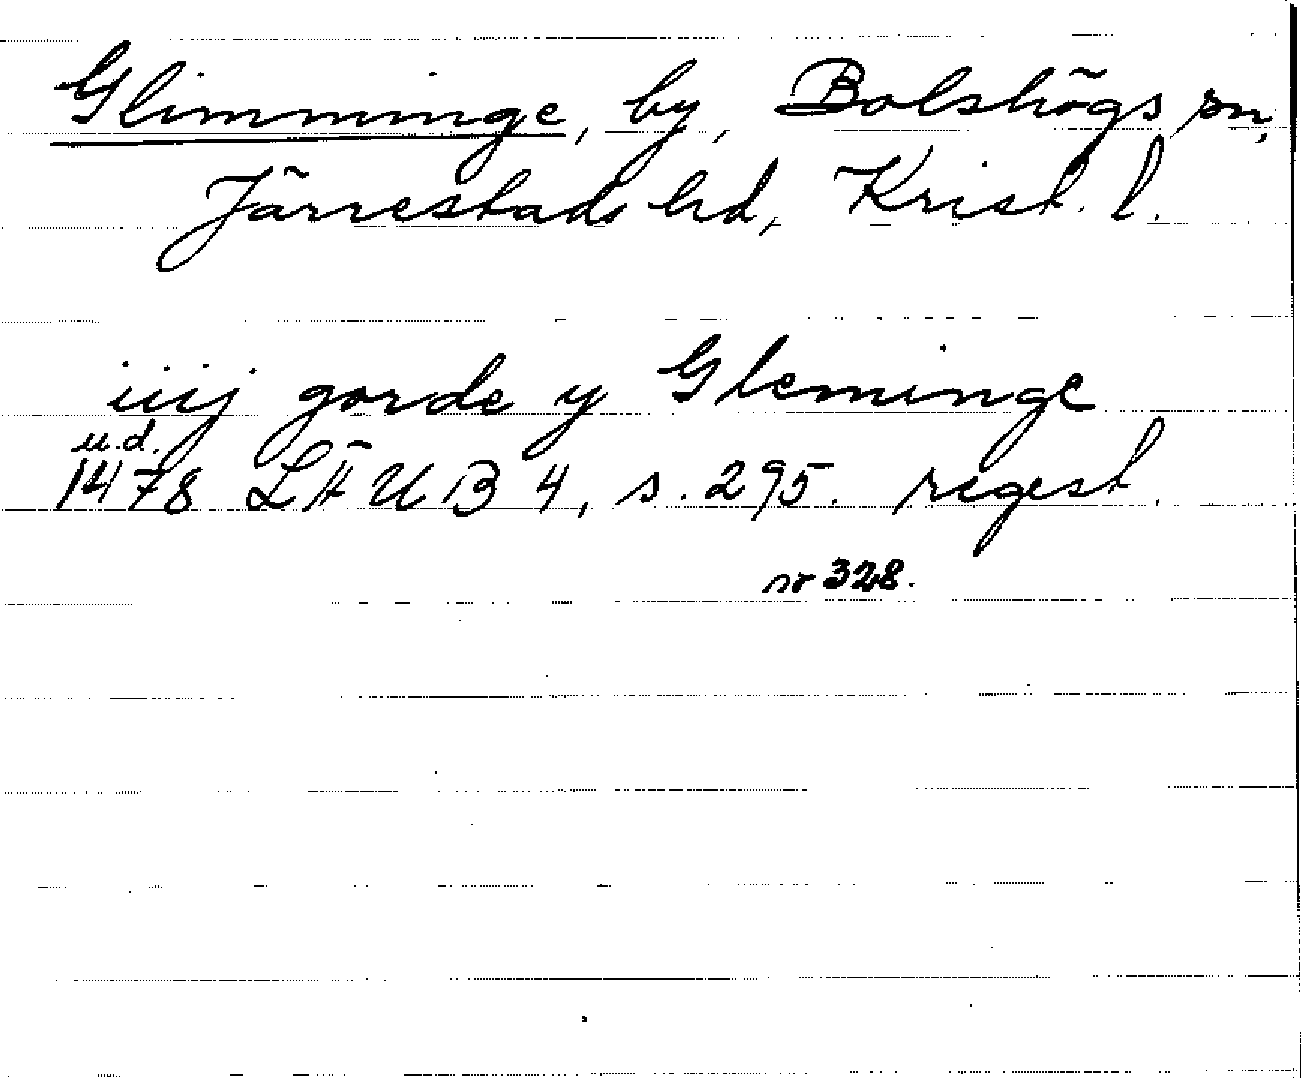 Glimminge, by, Bolshögs sn,
Järrestads hd, Krist. l.
iiij gorde y Gleminge
u.d.
1478 LÄUB 4, s. 295. regest.
nr 328.